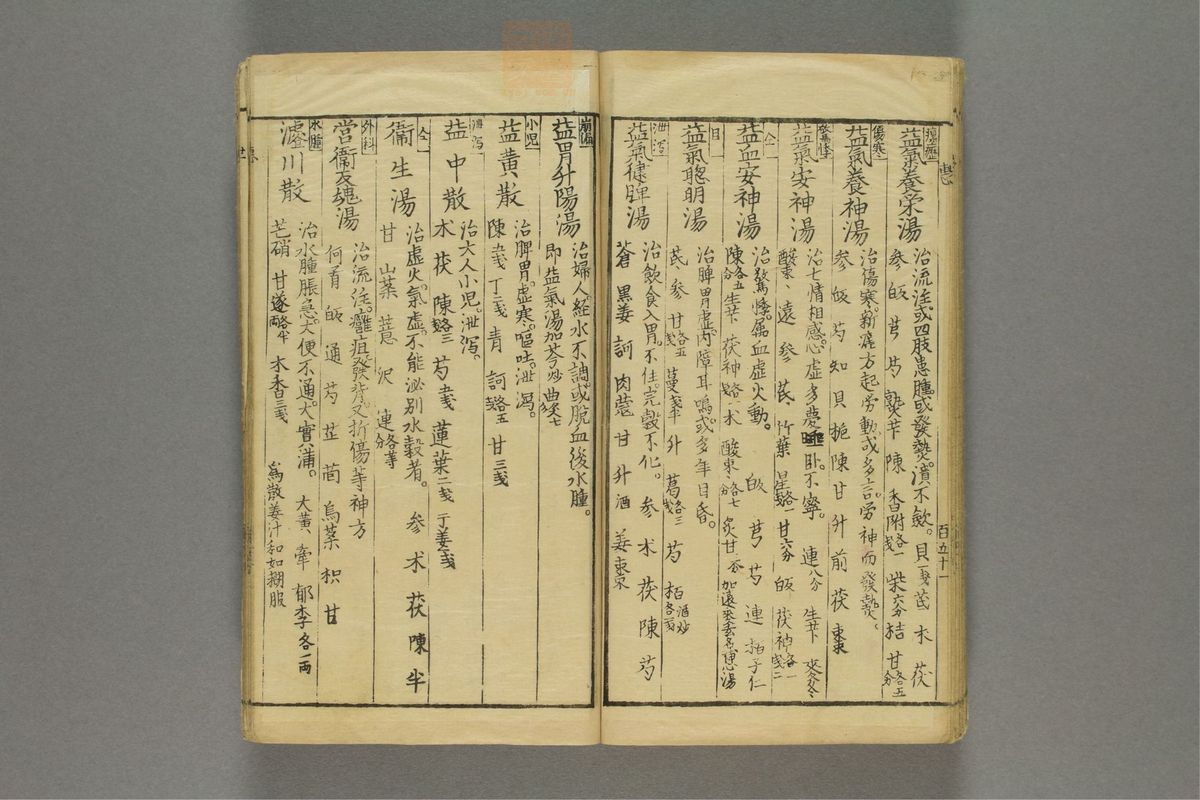 瘰癧
益氣養榮湯
治流注或四肢患腫或發熱。潰不歛。貝一戔芪木茯
參皈芎芍熟芐陳香附各一戔柴六分桔甘各五分
傷寒
益氣養神湯
治傷寒。新瘥方起勞動或多言。勞神而發熱。
參皈芍知貝梔陳甘升前茯棗
益氣安神湯
治七情相感。心虛多夢睡臥。不寧。連八分生芐麥冬
酸棗遠參芪竹葉星各一戔甘六分皈茯神各一戔二
仝
益血安神湯
治驚悸。属血虛火動。皈芎芍連梔子仁
陳各五分生芐茯神各一戔木酸棗各七分炙甘三分
目
益氣聰明湯
治脾胃虛。內障耳鳴。或多年目昏。
芪參甘各五戔蔓戔半升葛各三戔芍栢酒炒各二戔
泄瀉
益氣健脾湯
治飲食入胃。不住。完穀不化。參木茯陳芍
蒼黑姜訶肉蔻甘升酒姜棗
百五十一
崩漏
益胃升陽湯
治婦人經水不調。或脫血後水腫。
即益氣湯加芩炒曲
小児
益黃散
治脾胃。虛寒。嘔吐。泄瀉。
陳戔丁二戔青訶各五戔甘三戔
泄瀉
益中散
治大人小児。泄瀉。
木茯陳各三戔芍戔蓮葉二戔干姜戔
仝
衞生湯
治虛火。氣虛。不能泌別水穀者。參木茯陳半
甘山薬薏沢連各等分
外科
營衞反魂湯
治流注。癰疽。發背。又折傷等神方
何首皈通芍芷茴烏薬枳甘
水腫
濬川散
治水腫脹急。大便不通。大實滿。大黃牽郁李各一両
芒硝甘遂各半両木香三戔為散姜汁和如糊服